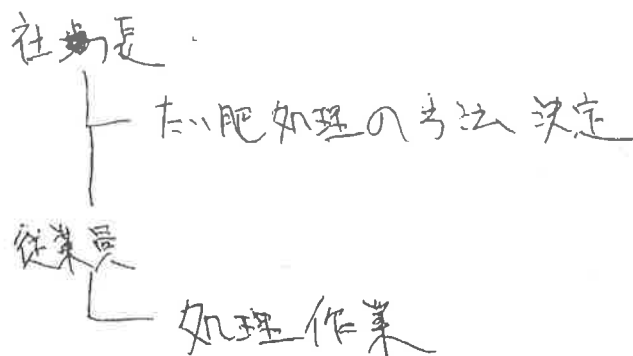 社長
たい肥処理の方法 決定
従業員
処理作業